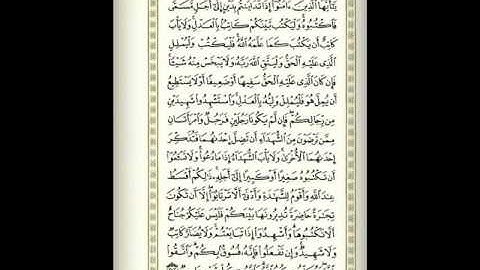 يَٰٓأَيُّهَا ٱلَّذِينَ ءَامَنُوٓا۟ إِذَا تَدَايَنتُم بِدَيْنٍ إِلَىٰٓ أَجَلٍ مُّسَمًّى
فَٱكْتُبُوهُ وَلْيَكْتُب بَّيْنَكُمْ كَاتِبٌۢ بِٱلْعَدْلِ وَلَا يَأْبَ
كَاتِبٌ أَن يَكْتُبَ كَمَا عَلَّمَهُ ٱللَّهُ فَلْيَكْتُبْ وَلْيُمْلِلِ
ٱلَّذِى عَلَيْهِ ٱلْحَقُّ وَلْيَتَّقِ ٱللَّهَ رَبَّهُۥ وَلَا يَبْخَسْ مِنْهُ شَيْـًٔا
فَإِن كَانَ ٱلَّذِى عَلَيْهِ ٱلْحَقُّ سَفِيهًا أَوْ ضَعِيفًا أَوْ لَا يَسْتَطِيعُ
أَن يُمِلَّ هُوَ فَلْيُمْلِلْ وَلِيُّهُۥ بِٱلْعَدْلِ وَٱسْتَشْهِدُوا۟ شَهِيدَيْنِ
مِن رِّجَالِكُمْ فَإِن لَّمْ يَكُونَا رَجُلَيْنِ فَرَجُلٌ وَٱمْرَأَتَانِ
مِمَّن تَرْضَوْنَ مِنَ ٱلشُّهَدَآءِ أَن تَضِلَّ إِحْدَىٰهُمَا فَتُذَكِّرَ
إِحْدَىٰهُمَا ٱلْأُخْرَىٰ وَلَا يَأْبَ ٱلشُّهَدَآءُ إِذَا مَا دُعُوا۟ وَلَا تَسْـَٔمُوٓا۟
أَن تَكْتُبُوهُ صَغِيرًا أَوْ كَبِيرًا إِلَىٰٓ أَجَلِهِۦ ذَٰلِكُمْ أَقْسَطُ
عِندَ ٱللَّهِ وَأَقْوَمُ لِلشَّهَٰدَةِ وَأَدْنَىٰٓ أَلَّا تَرْتَابُوٓا۟ إِلَّآ أَن تَكُونَ
تِجَٰرَةً حَاضِرَةً تُدِيرُونَهَا بَيْنَكُمْ فَلَيْسَ عَلَيْكُمْ جُنَاحٌ
أَلَّا تَكْتُبُوهَا وَأَشْهِدُوٓا۟ إِذَا تَبَايَعْتُمْ وَلَا يُضَآرَّ كَاتِبٌ
وَلَا شَهِيدٌ وَإِن تَفْعَلُوا۟ فَإِنَّهُۥ فُسُوقٌۢ بِكُمْ وَٱتَّقُوا۟